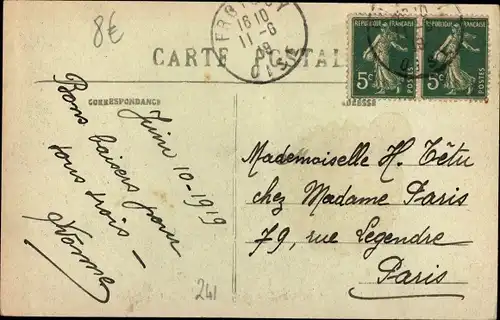 8€
16 10
11-6
OISE
CARTE POSTALE
REPUBLIQUE FRANÇAISE
5c
REPUBLIQUE FRANÇAISE
5c
CORRESPONDANCE
ADRESSE
Juin 10-1919
Bons baisers pour
tous trois —
Yvonne
Mademoiselle H. Têtu
chez Madame Paris
79, rue Legendre
Paris
241